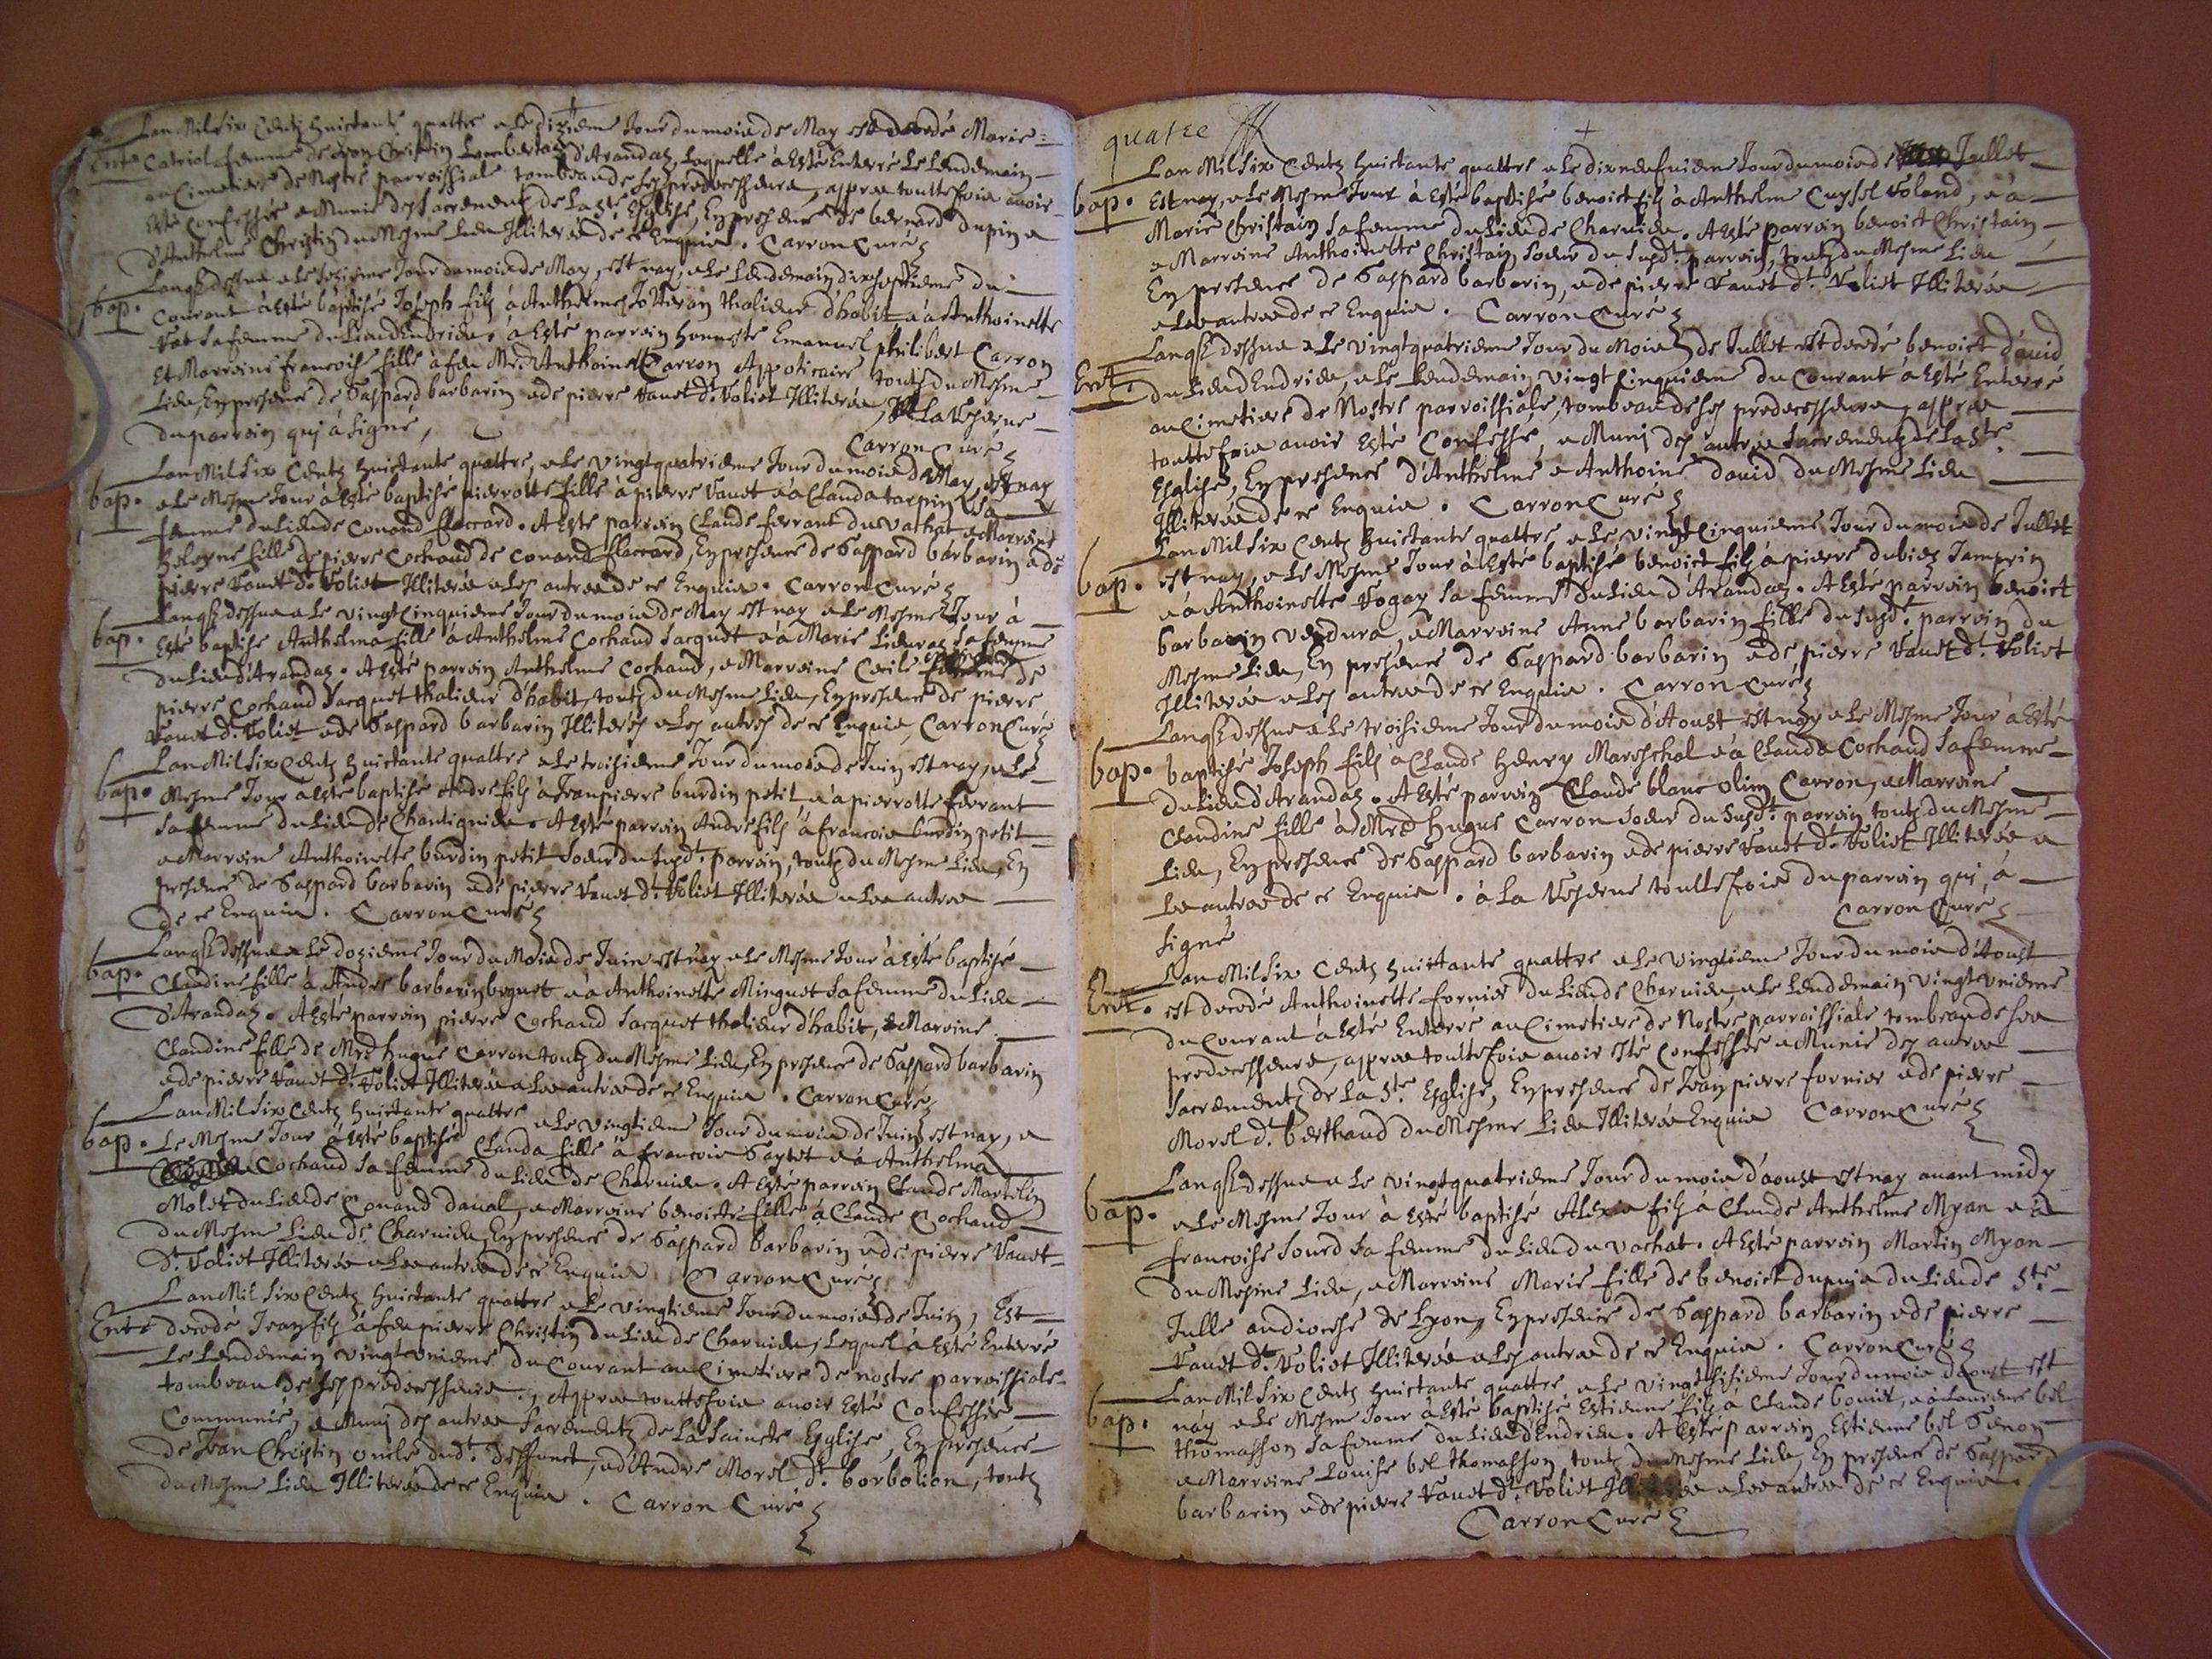 Lan Mil six Centz huictante quattre & Le dixieme Jour du mois de May est decedé Marie
Ent. Catriol femme de Jean Christin Lambert d'Arandaz, Laquelle à Esté Enterré Le Lendemain
au Cimetiere de Nostre parroissiale tombeau de ses predecesseurs, appres touttefois auoir
Esté Confessée & Munie des Sacrements de La Ste Esglise, En presence de bernard dupin &
d'Anthelme Christin du Mesme Lieu Illiterés de ce Enquis. Carron Curé
Lanqs dessus & Le sezieme Jour du mois de May, est nay, & Le Lendemain dixseptieme du
bap. Courant à esté baptisé Joseph filz à Anthelme Jotteran thalieur d'habit & à Anthoinette
sa femme du Lieu d'Endrieu. à Esté parrein honneste Emanuel philibert Carron
Et Marreine francoise fille à feu Mre Anthoine Carron Appoticaire touts du Mesme
Lieu, En presence de Gaspard barbarin & de pierre Vauet dt. Voliet Illiterés, à La reserue
du parrein qui à signé,
Carron Curé
Lan Mil six Centz huictante quattre, & Le vingtquatrieme Jour du mois de May, est nay
bap. & Le Mesme Jour à Esté baptisé pierrotte fille à pierre Vauet & à Clauda tarpin sa
femme du Lieu de Conand flaccard. A Esté parrein Claude ferrant du vachat & Marreine
heleyne fille de pierre Cochaud de Conand flaccard, En presence de Gaspard barbarin & de
pierre Vauet dt. Voliet Illiterés & Les autres de ce Enquis. Carron Curé
Lanqs dessus & Le vingt Cinquieme Jour du mois de May est nay & Le Mesme Jour à
bap. Esté baptisé Anthelma fille à Anthelme Cochaud Jacquet & à Marie Lieuraz sa femme
du Lieu d'Arandaz. A Esté parrein Anthelme Cochaud, & Marreine Cecile femme de
pierre Cochaud Jacquet thalieur d'habit, touts du Mesme Lieu, En presence de pierre
Vauet dt. Voliet & de Gaspard barbarin Illiterés & Les autres de ce Enquis, Carron Curé
Lan Mil six Centz huictante quattre & Le troisieme Jour du mois de Juin est nay, & Le
bap. Mesme Jour à esté baptisé André filz à Jeanpierre burdin petit & à pierrotte ferrant
sa femme du Lieu de Chantiguieu. A Esté parrein André filz à francois burdin petit
& Marreine Anthoinette burdin petit Soeur du susdt. parrein, touts du Mesme Lieu, En
presence de Gaspard barbarin & de pierre Vauet dt. Voliet Illiterés & Les autres
de ce Enquis. Carron Curé
Lanqs dessus & Le dozieme Jour du Mois de Juin est nay & Le Mesme Jour à esté baptisé
bap. Claudine fille à André barbarin boquet & à Anthoinette Minguet sa femme du Lieu
d'Arandaz. A Esté parrein pierre Cochaud Jacquet thalieur d'habit, & Mareine
Claudine fille de Mre hugue Carron touts du Mesme Lieu, En presence de Gaspard barbarin
& de pierre Vauet dt. Voliet Illiterés & Les autres de ce Enquis. Carron Curé
Lan Mil six Centz huictante quattre & Le vingtieme Jour du mois de Juin est nay, &
bap. Le Mesme Jour à esté baptisé Clauda fille à francois Gaytet & à Anthelma
Cochaud sa femme du Lieu de Charuieu. A Esté parrein Claude Martelin
Molet du Lieu de Conand daual, & Marreine benoicte fille à Claude Cochaud
du Mesme Lieu de Charuieu, En presence de Gaspard barbarin & de pierre Vauet
dt. Voliet Illiterés & Les autres de ce Enquis Carron Curé
Lan Mil six Centz huictante quattre & Le vingtieme Jour du mois de Juin, Est
Ent. decedé Jean filz à feu pierre Christin du Lieu de Charuieu, Lequel à Esté Enterré
Le Lendemain vingtvnieme du Courant au Cimetiere de nostre parroissiale
tombeau de ses predecesseurs, Appres touttefois auoir Esté Confessé
Communié, & Muni des autres Sacrements de La Saincte Esglise, En presence
de Jean Christin oncle dudt. deffunct, & d'André Morel dt. borbolion, touts
du Mesme Lieu Illiterés de ce Enquis. Carron Curé
quatre
Lan Mil six Centz huictante quattre & Le dixneufuieme Jour du mois de Juillet
bap. Est nay, & Le Mesme Jour à Esté baptisé benoict filz à Anthelme Cuysel Voland, & à
Marie Christain sa femme du Lieu de Charuieu. A Esté parrein benoict Christain
& Marreine Anthoinette Christain Soeur du Susdt. parrein, touts du Mesme Lieu
En presence de Gaspard barbarin, & de pierre Vauet dt. Voliet Illiterés
& Les autres de ce Enquis. Carron Curé
Lanqs dessus & Le vingtquatrieme Jour du Mois de Juillet est decedé benoict dauid
Ent. du Lieu d'Endrieu, & Le Lendemain vingt Cinquieme du Courant à Esté Enterré
au Cimetiere de Nostre parroissiale, tombeau de ses predecesseurs, appres
touttefois auoir Esté Confessé, & Muni des autres Sacrements de La Ste.
Esglise, En presence d'Anthelme & Anthoine dauid du Mesme Lieu
Illiterés de ce Enquis. Carron Curé
Lan Mil six Centz huictante quattre, & Le vingt Cinquieme Jour du mois de Juillet
bap. est nay, & Le Mesme Jour à Esté baptisé benoict filz à pierre dubiez Jamprin
& à Anthoinette Vogay sa femme du Lieu d'Arandaz. A Esté parrein benoict
barbarin Verdura, & Marreine Anne barbarin fille du Susdt. parrein du
Mesme Lieu, En presence de Gaspard barbarin & de pierre Vauet dt. Voliet
Illiterés & Les autres de ce Enquis. Carron Curé
Lanqs dessus & Le troisieme Jour du mois d'Aoust est nay & Le Mesme Jour à Esté
bap. baptisé Joseph filz à Claude henry Mareschal & à Clauda Cochaud sa femme
du Lieu d'Arandaz. A Esté parrein Claude blanc olim Carron, & Marreine
Claudine fille à Mre hugue Carron Soeur du Susdt. parrein touts du Mesme
Lieu, En presence de Gaspard barbarin & de pierre Vauet dt. Voliet Illiterés &
Les autres de ce Enquis. à La Reserue touttefois du parrein qui, à
signé
Carron Curé
Lan Mil six Centz huictante quattre & Le vingtieme Jour du mois d'Aoust
Ent. est decedé Anthoinette fornier du Lieu de Charuieu, & Le Lendemain vingt vnieme
du Courant à Esté Enterré au Cimetiere de Nostre parroissiale tombeau de ses
predecesseurs, appres touttefois auoir esté Confessée & Munie des autres
Sacrements de La Ste. Esglise, En presence de Jean pierre fornier & de pierre
Morel dt. berthaud du Mesme Lieu Illiterés Enquis Carron Curé
Lanqs dessus & Le vingtquatrieme Jour du mois d'aoust est nay auant midy
bap. & Le Mesme Jour à Esté baptisé Alexis filz à Claude Anthelme Myan & à
francoise Sourd sa femme du Lieu du vachat. A Esté parrein Martin Myan
du Mesme Lieu, & Marreine Marie fille de benoict dupuis du Lieu de Ste
Julle au diocese de Lyon, En presence de Gaspard barbarin & de pierre
Vauet dt. Voliet Illiterés & Les autres de ce Enquis. Carron Curé
Lan Mil six Centz huictante quattre, & Le vingtsisieme Jour du mois daoust est
bap. nay & Le Mesme Jour à Esté baptisé Estienne filz à Claude bouuet, & à Laurence bel
thomasson sa femme du Lieu d'Endrieu. A Esté parrein Estienne bel Genon
& Marreine Louise bel thomasson touts du Mesme Lieu, En presence de Gaspard
barbarin & de pierre Vauet dt. Voliet Illiterés & Les autres de ce Enquis.
Carron Curé